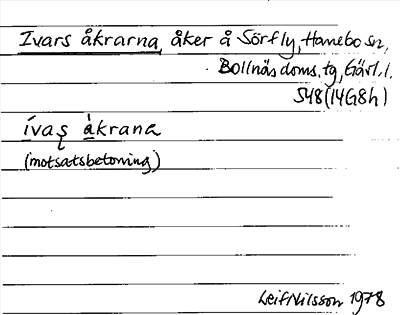 Ivars åkrarna, åker å Sörfly, Hanebo sn,
Bollnäs doms. tg, Gävl. l.
S48 (14G8h)
ívaș åkrana
(motsatsbetoning)
Leif Nilsson 1978